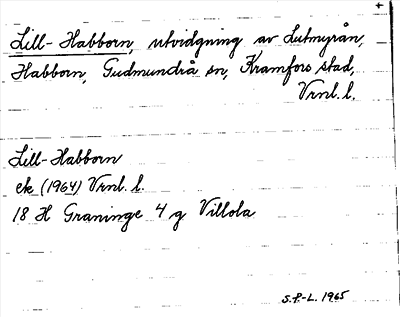 Lill-Habborn, utvidgning av Lutmyrån,
Habborn, Gudmundrå sn, Kramfors stad,
Vrnl. l.
Lill-Habborn
ek (1964) Vrnl. l.
18 H Graninge 4 g Villola
S.P-L. 1965